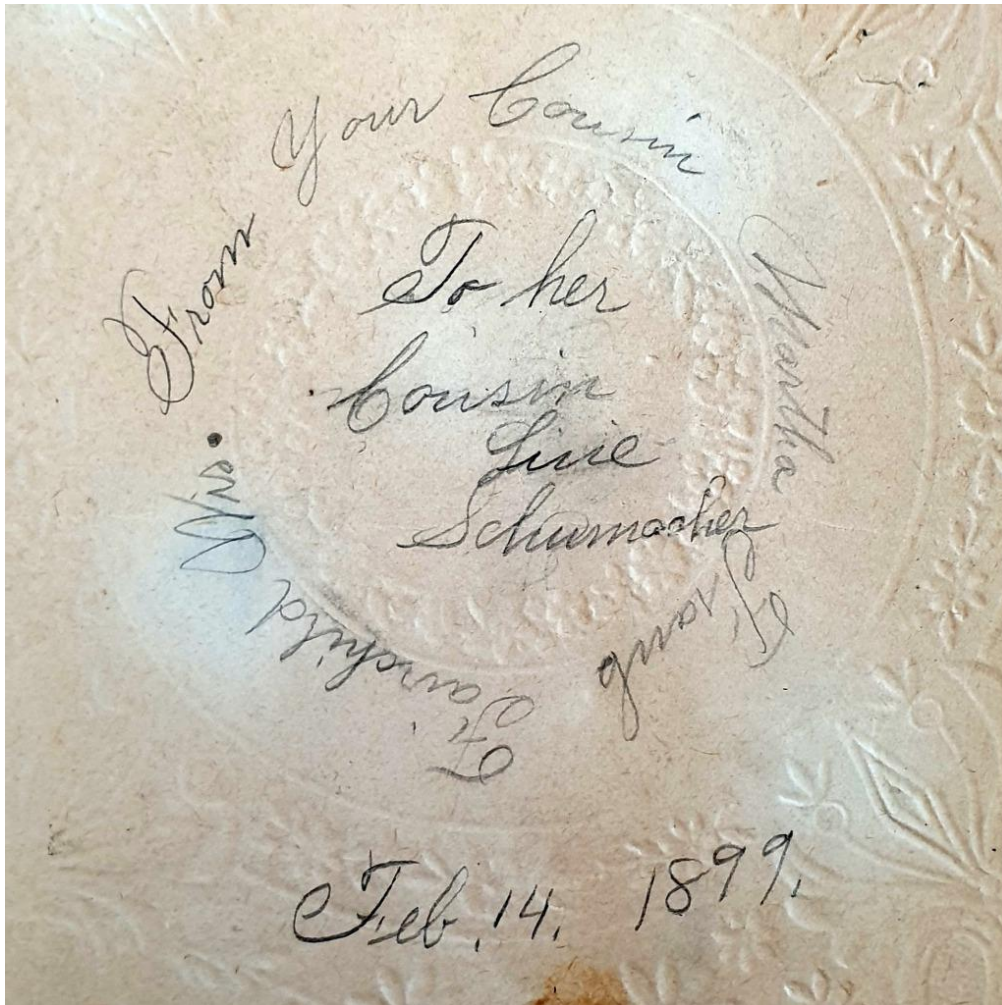 From Your Cousin Martha Frank Fairchild Wis.
To her
Cousin
Linie
Schumacher
Feb. 14. 1899.